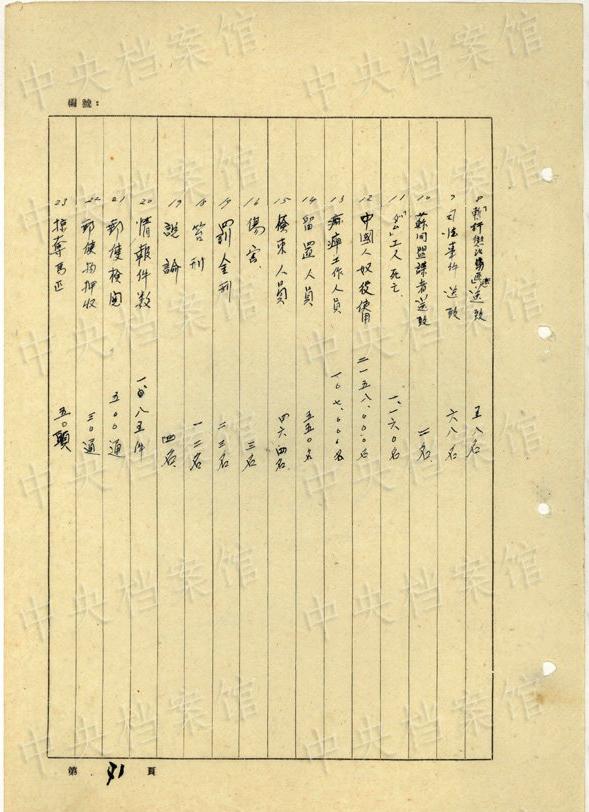 編號:
8 送致 五八名
9 司法事件 送致 六八名
10 蘇同盟諜者送致 二名
11 工人死亡 一、一六〇名
12 中國人奴役使用 二一五八、〇〇〇名
13 工作人員 一〇七、〇〇〇名
14 留置人員 五五〇名
15 檢束人員 四六四名
16 傷害 三名
17 罰金刑 二三名
18 笞刑 一二名
19 説諭 四名
20 情報件数 八五件
21 郵便検閲 五〇〇通
22 郵便物押収 三〇通
23 掠奪馬匹 五〇頭
第 31 頁
中央档案馆